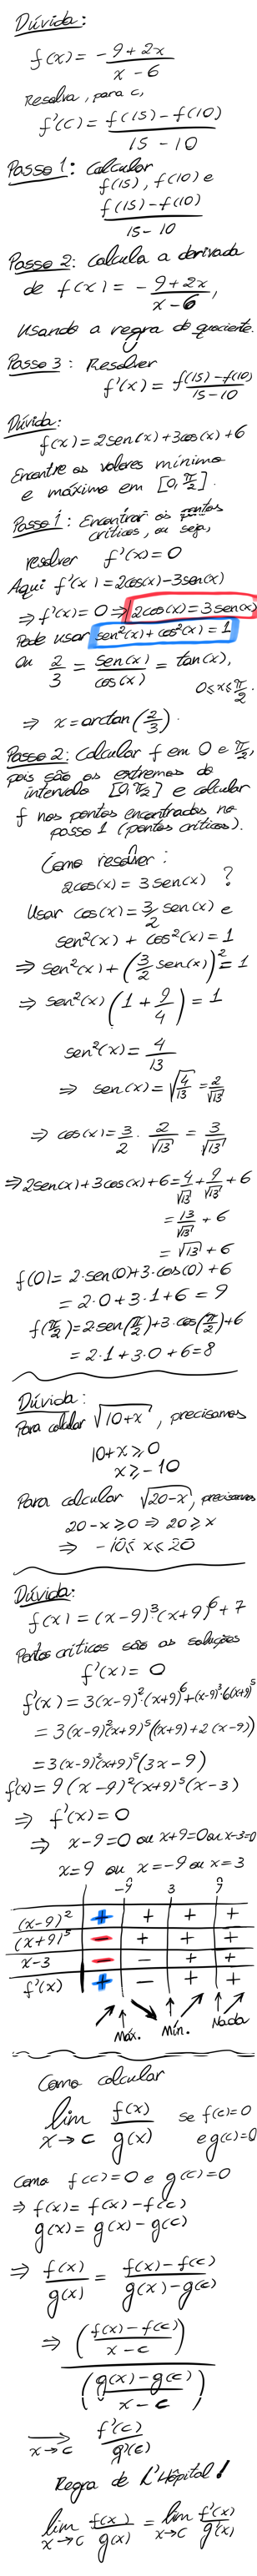 Dúvida:
f(x) = -9+2x / x-6
Resolva, para c,
f'(c) = f(15) - f(10) / 15 - 10
Passo 1: Calcular
f(15), f(10) e
f(15) - f(10) / 15 - 10
Passo 2: Calcula a derivada
de f(x) = -9+2x / x-6,
usando a regra do quociente.
Passo 3: Resolver
f'(x) = f(15) - f(10) / 15 - 10
Dúvida:
f(x) = 2sen(x) + 3cos(x) + 6
Encontre os valores mínimo
e máximo em [0, π/2].
Passo 1: Encontrar os pontos
críticos, ou seja,
resolver f'(x) = 0
Aqui f'(x) = 2cos(x) - 3sen(x)
⇒ f'(x) = 0 ⇒ 2cos(x) = 3sen(x)
Pode usar sen²(x) + cos²(x) = 1
Ou 2/3 = sen(x)/cos(x) = tan(x),
0 ≤ x ≤ π/2.
⇒ x = arctan(2/3).
Passo 2: Calcular f em 0 e π/2,
pois são os extremos do
intervalo [0, π/2] e calcular
f nos pontos encontrados no
passo 1 (pontos críticos).
Como resolver:
2cos(x) = 3sen(x) ?
Usar cos(x) = 3/2 sen(x) e
sen²(x) + cos²(x) = 1
⇒ sen²(x) + (3/2 sen(x))² = 1
⇒ sen²(x) (1 + 9/4) = 1
sen²(x) = 4/13
⇒ sen(x) = √(4/13) = 2/√13
⇒ cos(x) = 3/2 · 2/√13 = 3/√13
⇒ 2sen(x) + 3cos(x) + 6 = 4/√13 + 9/√13 + 6
= 13/√13 + 6
= √13 + 6
f(0) = 2·sen(0) + 3·cos(0) + 6
= 2·0 + 3·1 + 6 = 9
f(π/2) = 2·sen(π/2) + 3·cos(π/2) + 6
= 2·1 + 3·0 + 6 = 8
Dúvida:
Para calcular √10+x, precisamos
10+x ≥ 0
x ≥ -10
Para calcular √20-x, precisamos
20-x ≥ 0 ⇒ 20 ≥ x
⇒ -10 ≤ x ≤ 20
Dúvida:
f(x) = (x-9)³(x+9)⁶ + 7
Pontos críticos são as soluções
f'(x) = 0
f'(x) = 3(x-9)²(x+9)⁶ + (x-9)³·6(x+9)⁵
= 3(x-9)²(x+9)⁵((x+9) + 2(x-9))
= 3(x-9)²(x+9)⁵(3x-9)
f'(x) = 9(x-9)²(x+9)⁵(x-3)
⇒ f'(x) = 0
⇒ x-9=0 ou x+9=0 ou x-3=0
x=9 ou x=-9 ou x=3
-9 3 9
(x-9)² + + + +
(x+9)⁵ - + + +
x-3 - - + +
f'(x) + - + +
Máx. Mín. Nada
Como calcular
lim x→c f(x)/g(x) se f(c)=0
e g(c)=0
Como f(c)=0 e g(c)=0
⇒ f(x) = f(x) - f(c)
g(x) = g(x) - g(c)
⇒ f(x)/g(x) = f(x) - f(c) / g(x) - g(c)
⇒ (f(x) - f(c) / x - c) / (g(x) - g(c) / x - c)
→ x→c f'(c)/g'(c)
Regra de L'Hôpital!
lim x→c f(x)/g(x) = lim x→c f'(x)/g'(x)